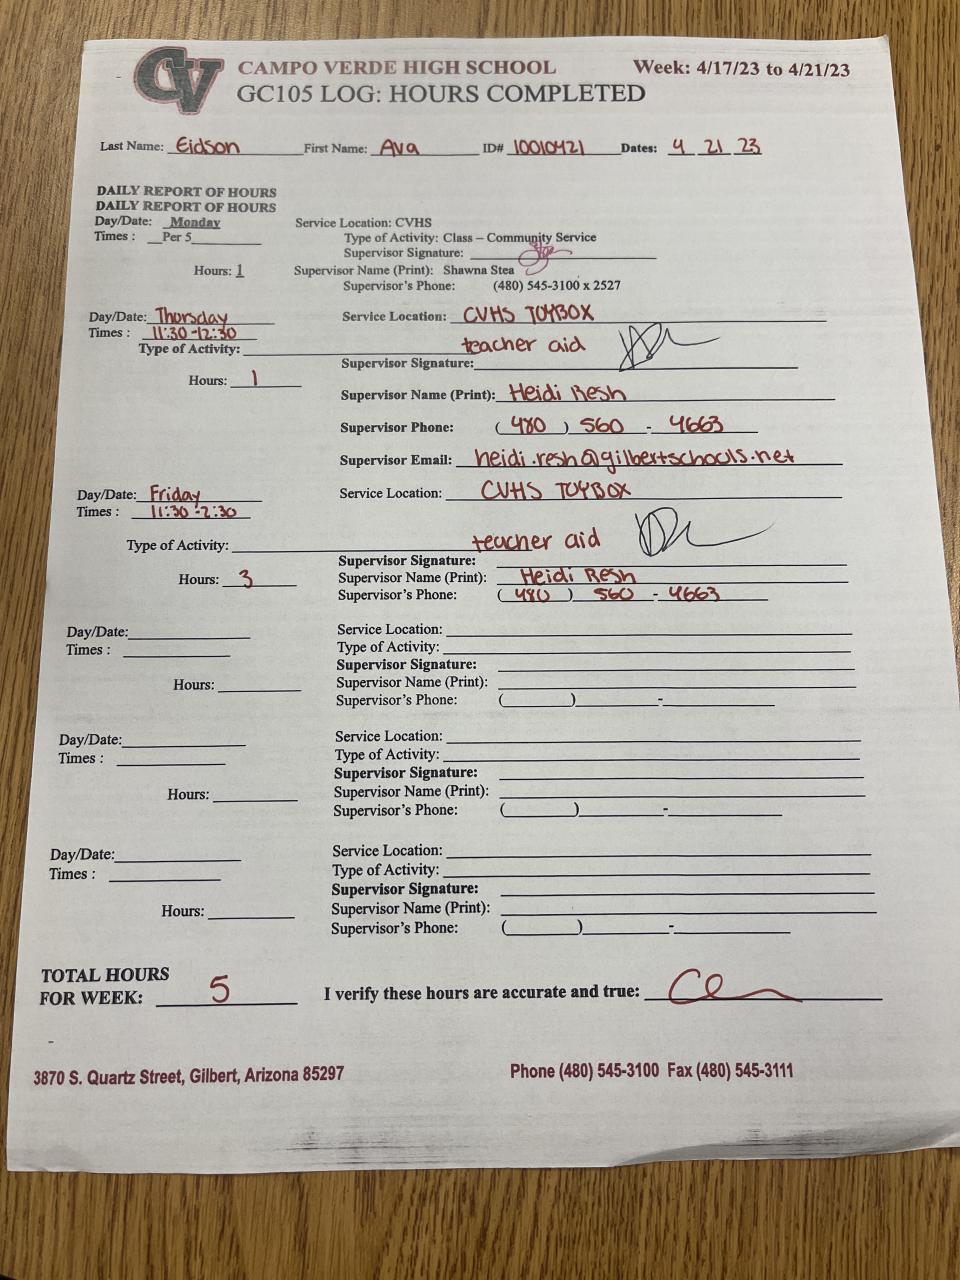 CV
CAMPO VERDE HIGH SCHOOL Week: 4/17/23 to 4/21/23
GC105 LOG: HOURS COMPLETED
Last Name: Eidson First Name: Ava ID# 10010421 Dates: 4 21 23
DAILY REPORT OF HOURS
DAILY REPORT OF HOURS
Day/Date: Monday Service Location: CVHS
Times : Per 5 Type of Activity: Class – Community Service
Supervisor Signature:
Hours: 1 Supervisor Name (Print): Shawna Stea
Supervisor's Phone: (480) 545-3100 x 2527
Day/Date: Thursday Service Location: CVHS TOYBOX
Times : 11:30-12:30
Type of Activity: teacher aid
Supervisor Signature:
Hours: 1
Supervisor Name (Print): Heidi Resh
Supervisor Phone: (480) 560 - 4663
Supervisor Email: heidi.resh@gilbertschools.net
Day/Date: Friday Service Location: CVHS TOYBOX
Times : 11:30-2:30
Type of Activity: teacher aid
Supervisor Signature:
Hours: 3 Supervisor Name (Print): Heidi Resh
Supervisor's Phone: (480) 560 - 4663
Day/Date: Service Location:
Times : Type of Activity:
Supervisor Signature:
Hours: Supervisor Name (Print):
Supervisor's Phone: ( ) -
Day/Date: Service Location:
Times : Type of Activity:
Supervisor Signature:
Hours: Supervisor Name (Print):
Supervisor's Phone: ( ) -
Day/Date: Service Location:
Times : Type of Activity:
Supervisor Signature:
Hours: Supervisor Name (Print):
Supervisor's Phone: ( ) -
TOTAL HOURS
FOR WEEK: 5 I verify these hours are accurate and true:
3870 S. Quartz Street, Gilbert, Arizona 85297 Phone (480) 545-3100 Fax (480) 545-3111